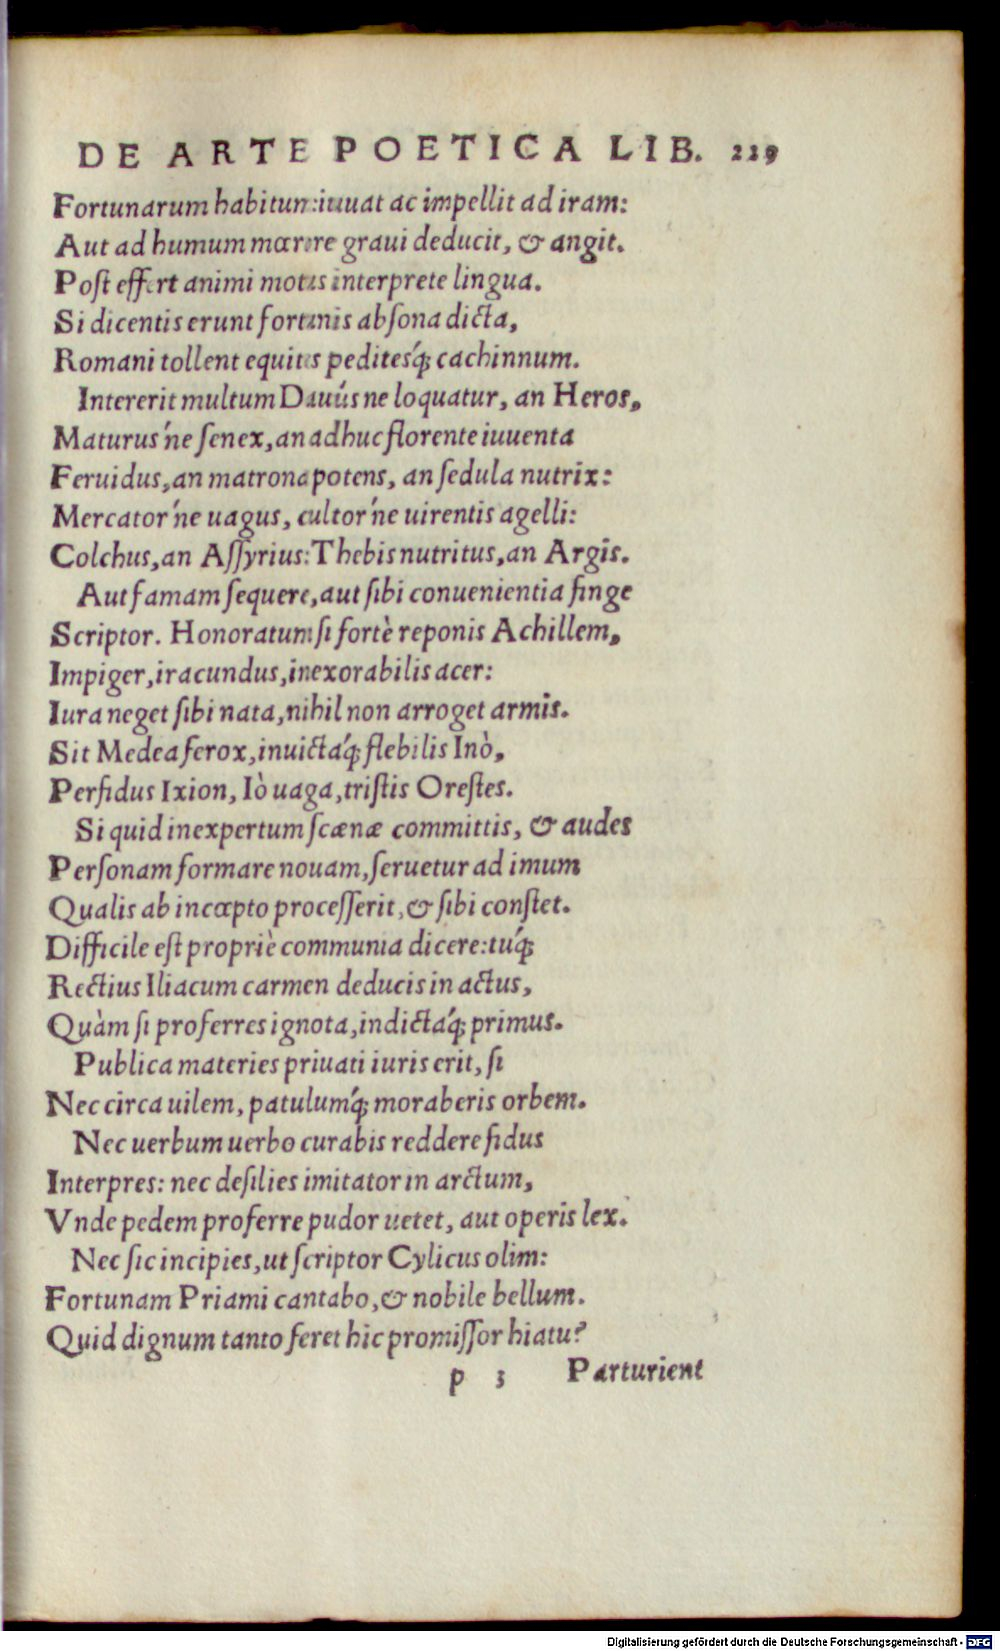 DE ARTE POETICA LIB. 229
Fortunarum habitum:iuuat ac impellit ad iram:
Aut ad humum mœrore graui deducit, & angit.
Post effert animi motus interprete lingua.
Si dicentis erunt fortunis absona dicta,
Romani tollent equites peditesq́; cachinnum.
Intererit multum Dauús ne loquatur, an Heros,
Maturus´ne senex, an adhuc florente iuuenta
Feruidus, an matrona potens, an sedula nutrix:
Mercator´ne uagus, cultor´ne uirentis agelli:
Colchus, an Assyrius: Thebis nutritus, an Argis.
Aut famam sequere, aut sibi conuenientia finge
Scriptor. Honoratum si fortè reponis Achillem,
Impiger, iracundus, inexorabilis acer:
Iura neget sibi nata, nihil non arroget armis.
Sit Medea ferox, inuictáq; flebilis Inò,
Perfidus Ixion, Iò uaga, tristis Orestes.
Si quid inexpertum scænæ committis, & audes
Personam formare nouam, seruetur ad imum
Qualis ab incœpto processerit, & sibi constet.
Difficile est propriè communia dicere: túq;
Rectius Iliacum carmen deducis in actus,
Quàm si proferres ignota, indictáq; primus.
Publica materies priuati iuris erit, si
Nec circa uilem, patulumq́; moraberis orbem.
Nec uerbum uerbo curabis reddere fidus
Interpres: nec desilies imitator in arctum,
Vnde pedem proferre pudor uetet, aut operis lex.
Nec sic incipies, ut scriptor Cylicus olim:
Fortunam Priami cantabo, & nobile bellum.
Quid dignum tanto feret hic promissor hiatu?
p 3 Parturient
Digitalisierung gefördert durch die Deutsche Forschungsgemeinschaft - DFG